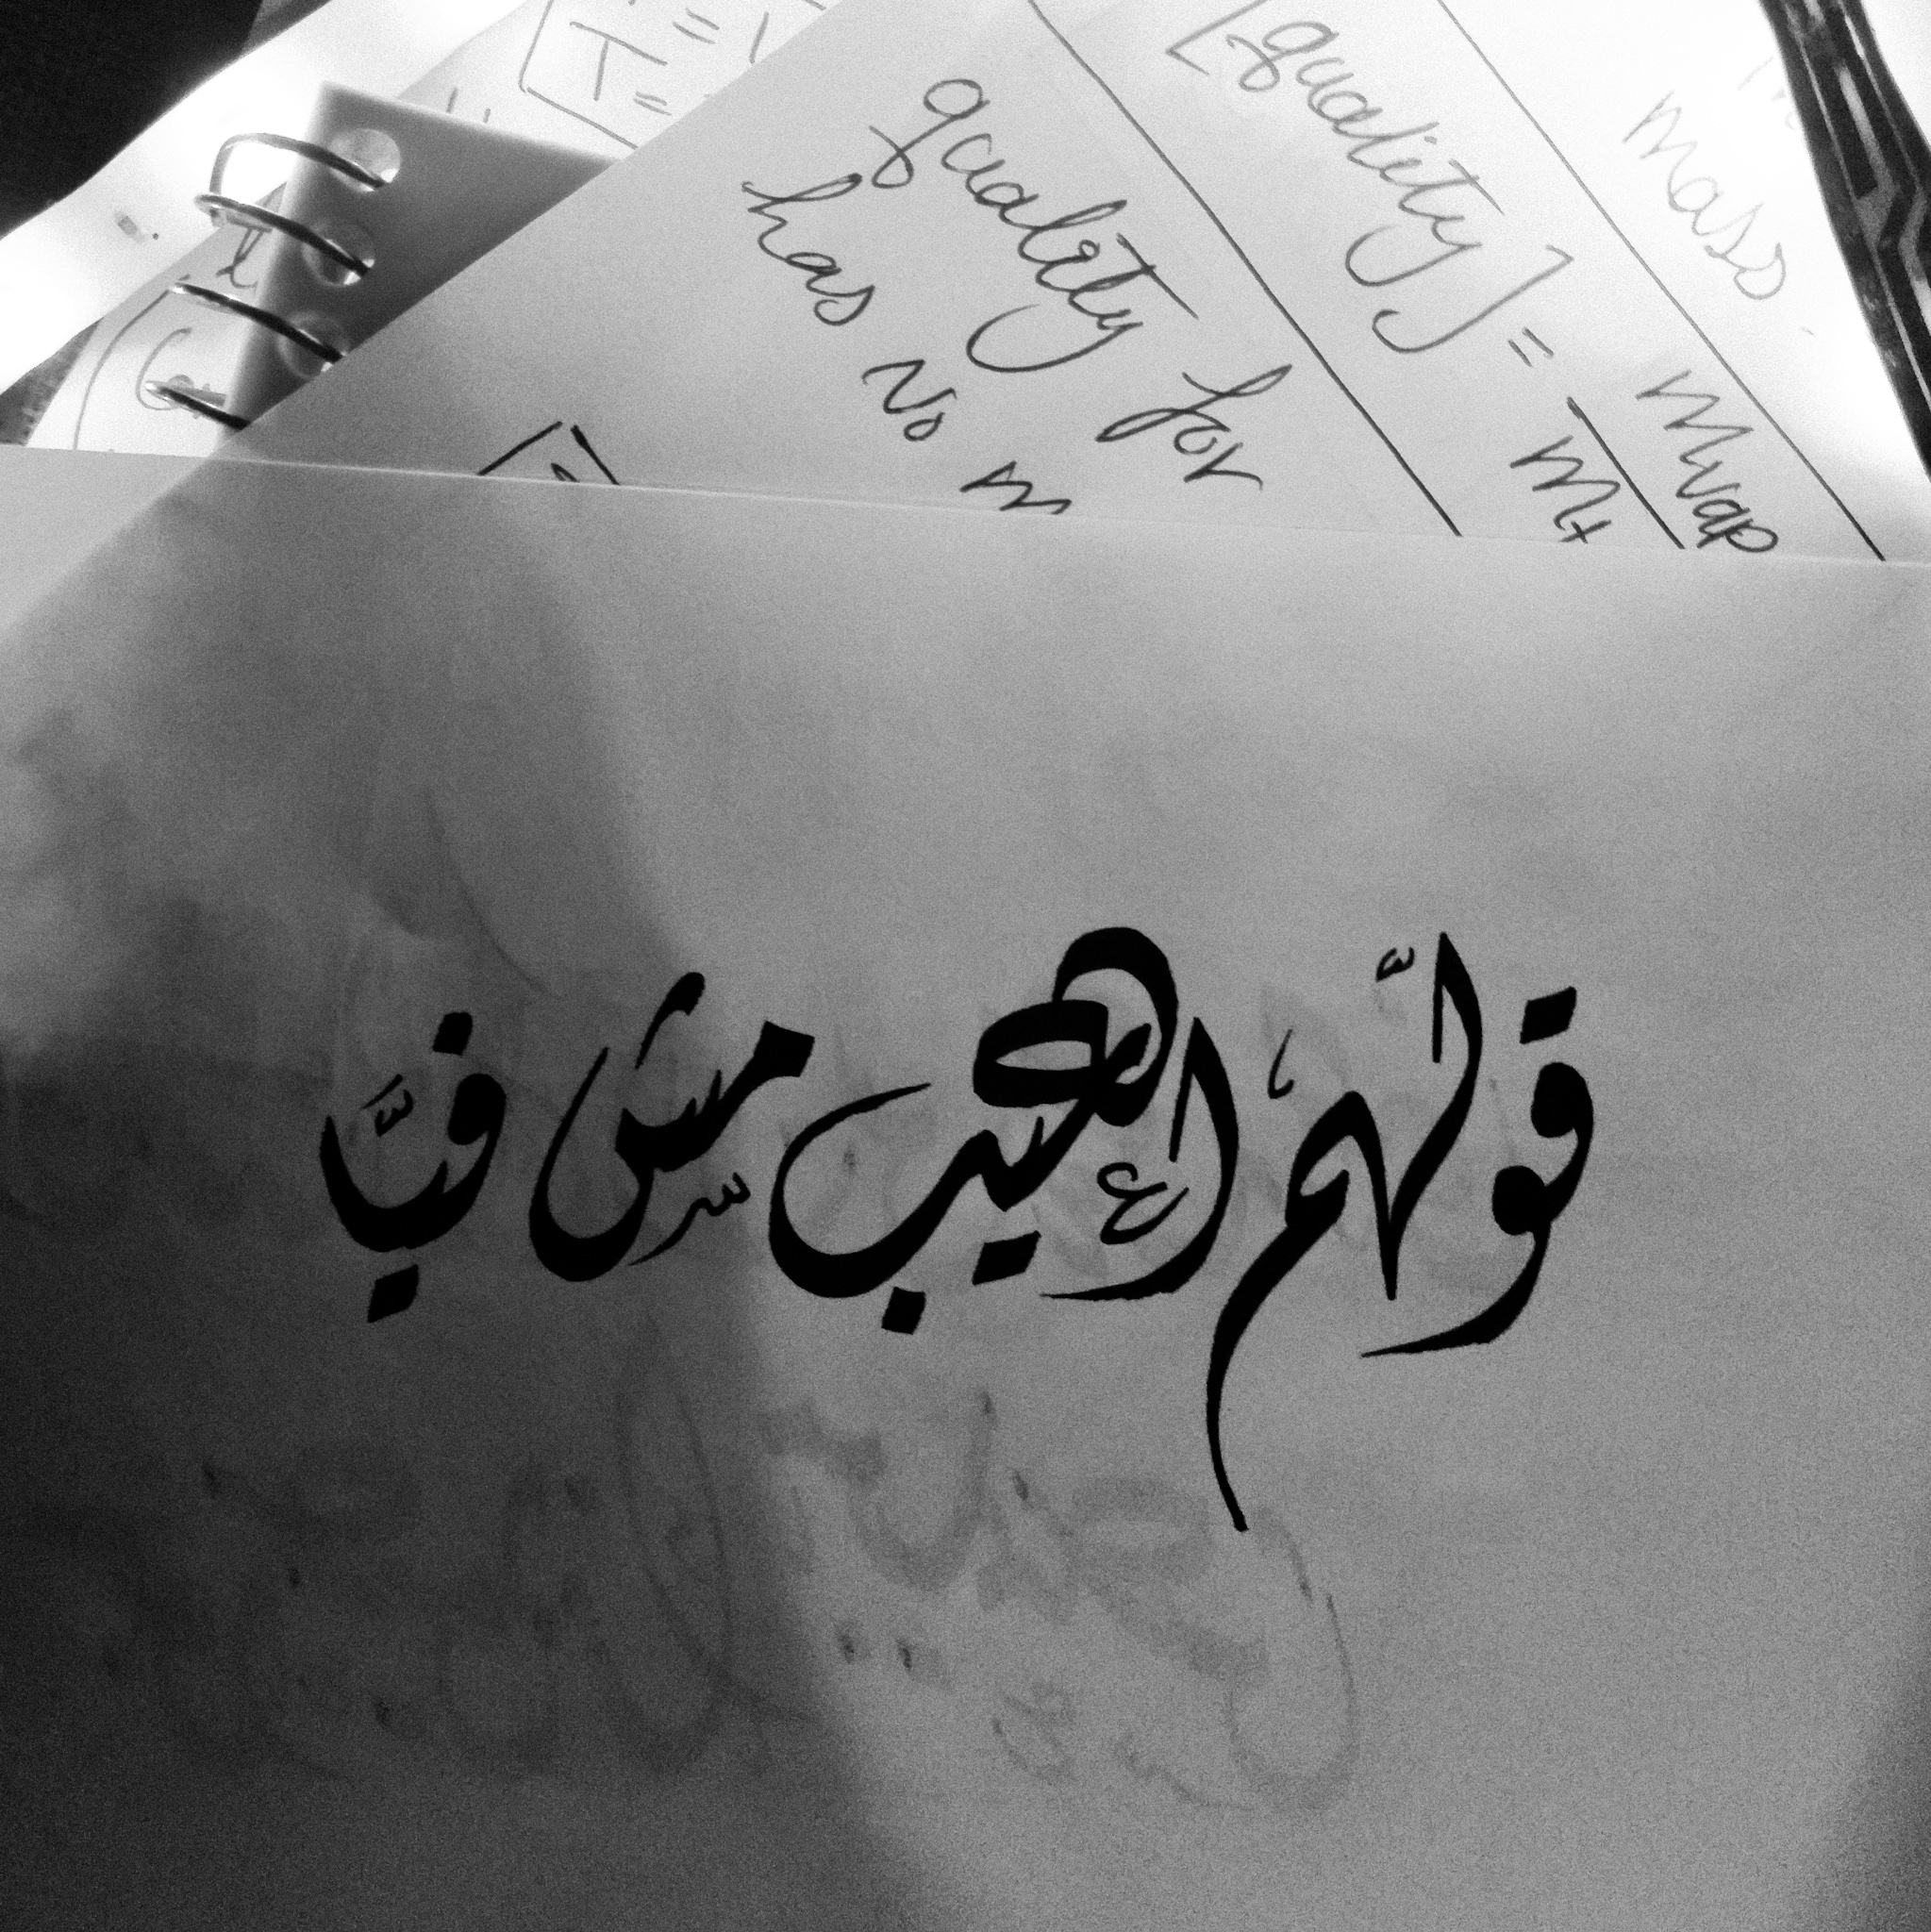 T =
T =
mass
[quality] = mvap
mt
quality for
has No m
قولّهم العيب مش فيّ